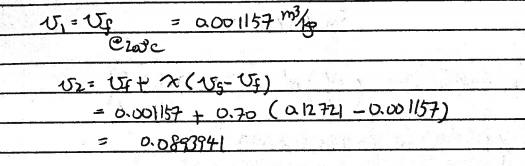 v₁ = v_f = 0.001157 m³/kg
@200°C
v₂ = v_f + x (v_g - v_f)
= 0.001157 + 0.70 (0.12721 - 0.001157)
= 0.0893941